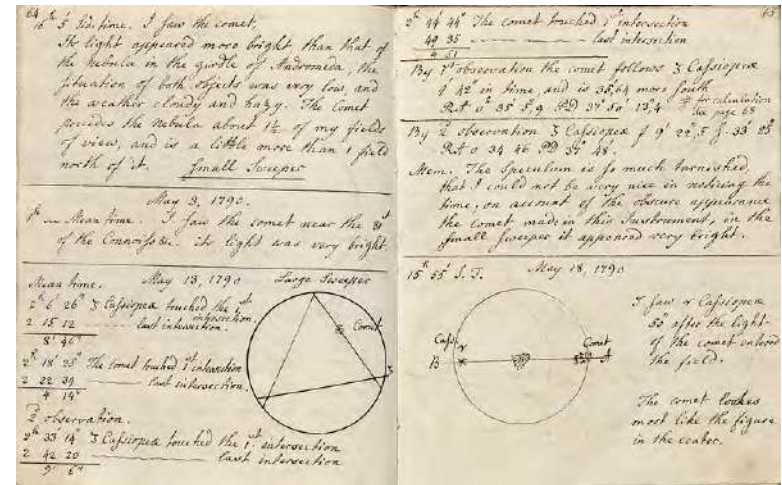 64
16h 5' Sid. time. I saw the comet,
Its light appeared more bright, than that of
the nebula in the girdle of Andromeda, the
situation of both objects was very low, and
the weather cloudy and hazy. The Comet
precedes the Nebula about 1½ of my fields
of view, and is a little more than 1 field
north of it. Small Sweeper
May 3, 1790.
Mean time. I saw the comet near the
of the Connoiss. its light was very bright
Mean time. May 13, 1790 Large Sweeper
2h 6' 26" Cassiopeæ touched the 1st
intersection.
2 15 12 last intersection.
8' 46"
Comet
2h 18' 25" The comet touched 1st intersection
2 22 39 last intersection.
4 14"
2d observation.
2h 33' 14" Cassiopeæ touched the 1st intersection
2 42 20 last intersection
9' 6"
65
2h 44' 44" The comet touched 1st intersection
49 35 last intersection
4 51
By 1st observation the comet follows Cassiopeæ
9' 42 in time, and is 35,64 more south
RA 0h 35' 5,9 PD 37° 50' 13,4 for calculation
see page 68
By 2d observation Cassiopeæ f 9' 22",5 S. 33' 25"
RA 0 34 46 PD 37° 48'.
Mem: The Speculum is so much tarnished,
that I could not be very nice in noticing the
time, on account of the obscure appearance
the comet made in this Instrument, in the
small sweeper it appeared very bright.
15h 55' S.T. May 18, 1790
I saw γ Cassiopeæ
50" after the light
of the comet entered
the field.
Cass. γ
Comet
B
A
The comet looks
most like the figure
in the center.